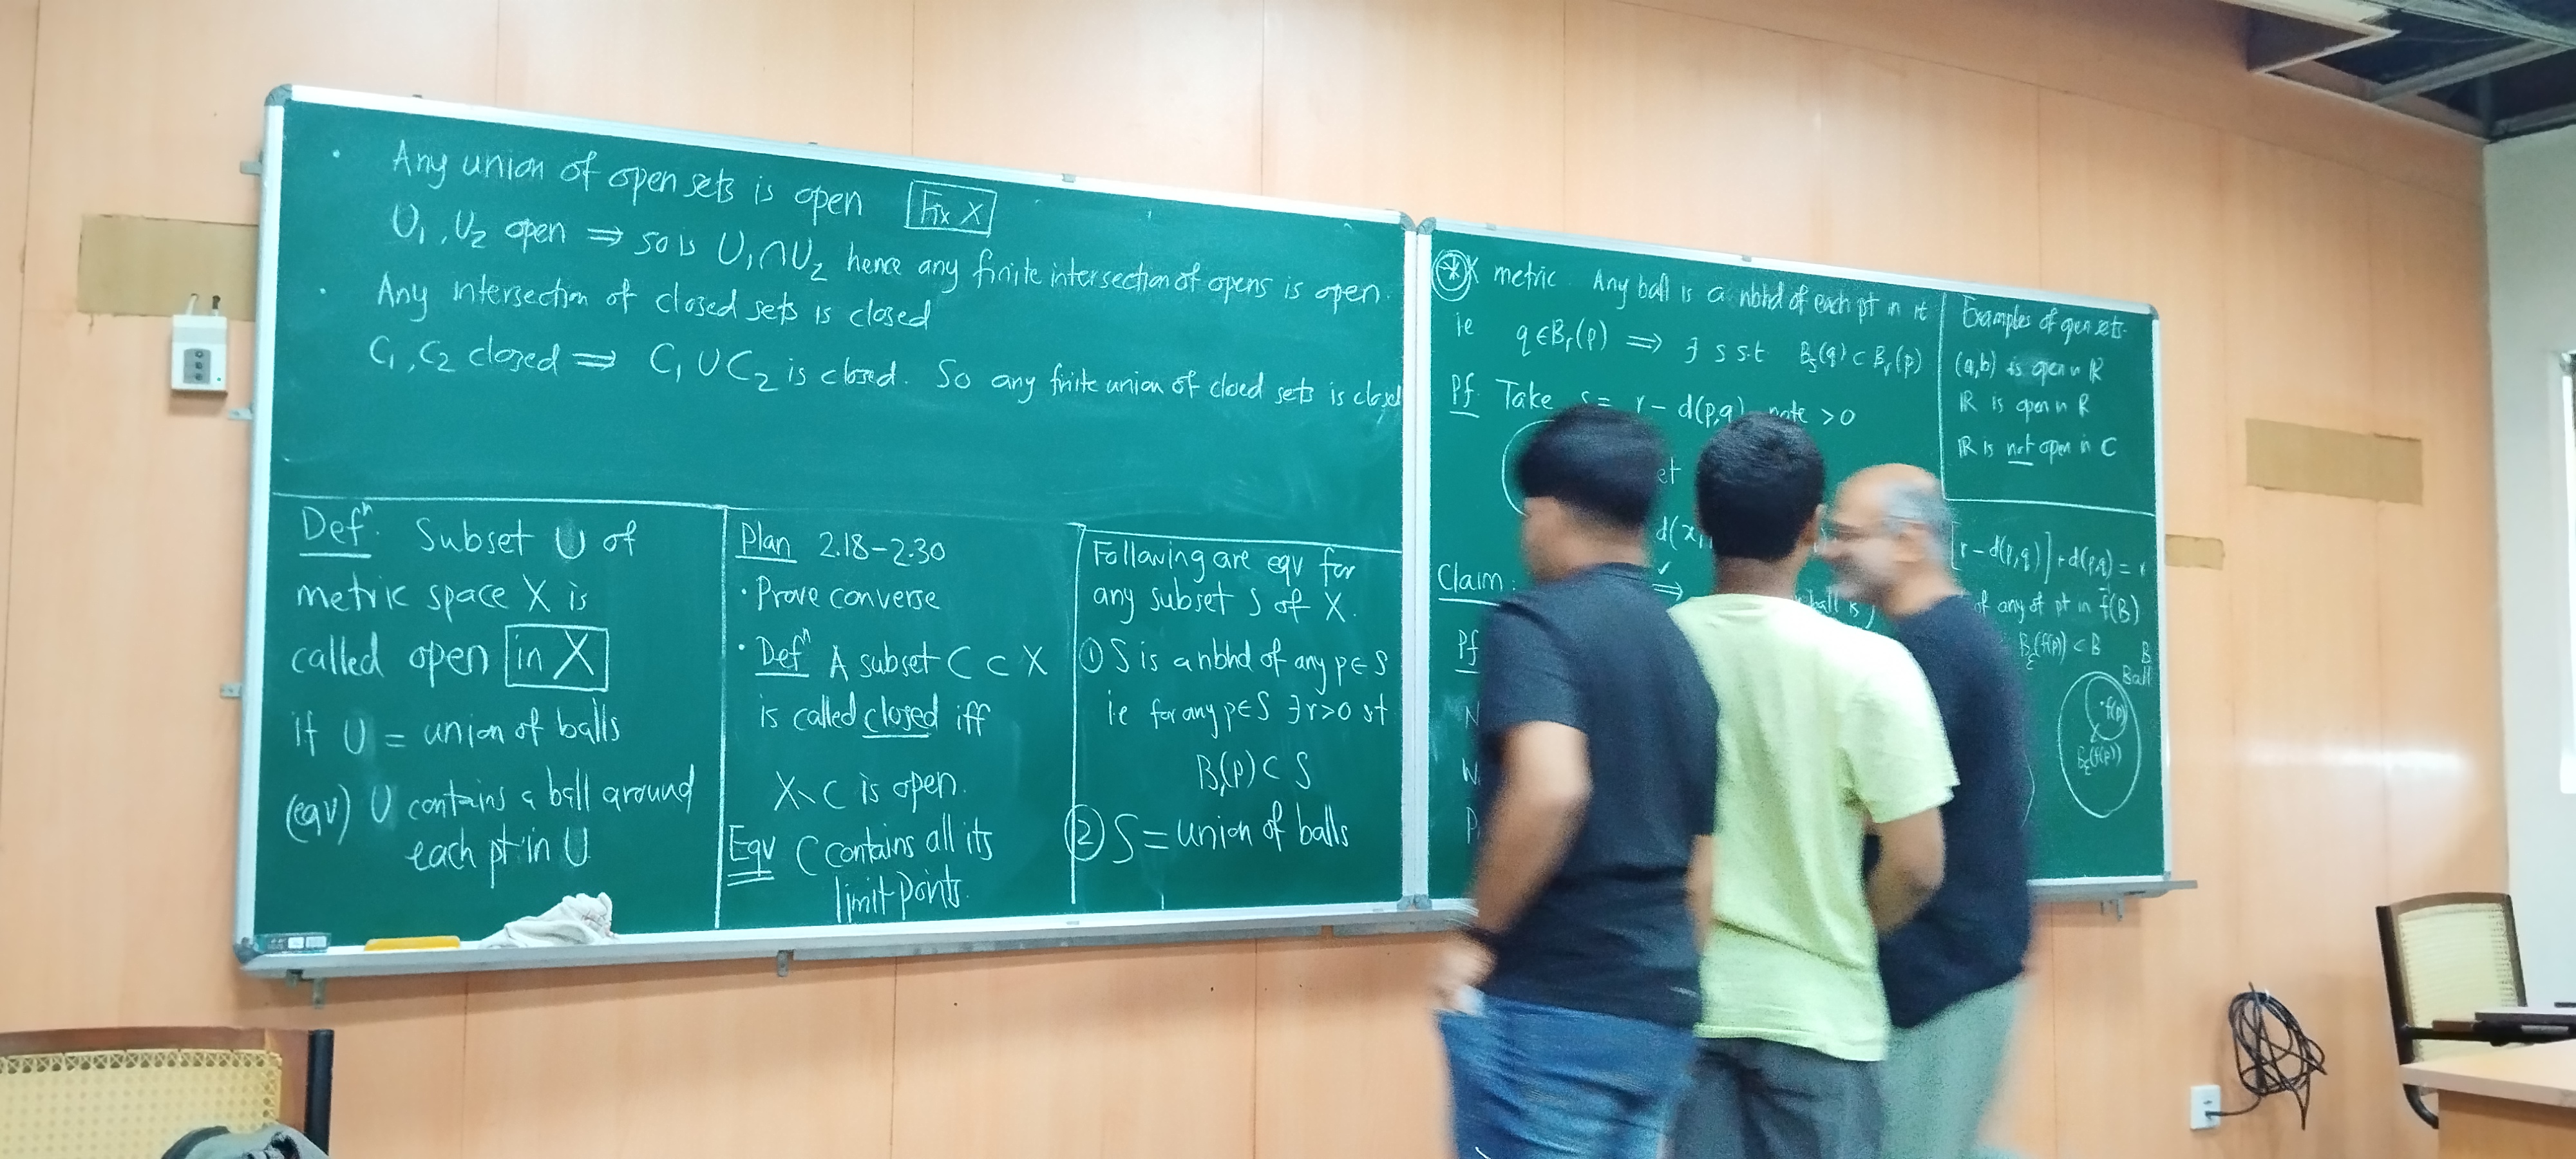 · Any union of open sets is open Fix X
U₁, U₂ open ⟹ so is U₁∩U₂ hence any finite intersection of opens is open.
· Any intersection of closed sets is closed
C₁, C₂ closed ⟹ C₁ ∪ C₂ is closed. So any finite union of closed sets is closed
Defⁿ: Subset U of
metric space X is
called open in X
if U = union of balls
(eqv) U contains a ball around
each pt in U
Plan 2.18-2.30
· Prove converse
· Defⁿ A subset C ⊂ X
is called closed iff
X∖C is open.
Eqv C contains all its
limit points.
Following are eqv for
any subset S of X.
① S is a nbhd of any p∈S
ie for any p∈S ∃r>0 st
Bᵣ(p) ⊂ S
② S = union of balls
* X metric. Any ball is a nbhd of each pt in it
ie q∈Bᵣ(p) ⟹ ∃ s s.t. Bₛ(q) ⊂ Bᵣ(p)
Pf Take s = r - d(p,q) note >0
et
d(x,
[r - d(p,q)] + d(p,q) = r
Claim: ⟹ ball is of any of pt in f⁻¹(B)
Pf B_ε(f(p)) ⊂ B
B
Ball
·f(p)
B_ε(f(p))
Examples of open sets
(a,b) is open in ℝ
ℝ is open in ℝ
ℝ is not open in C